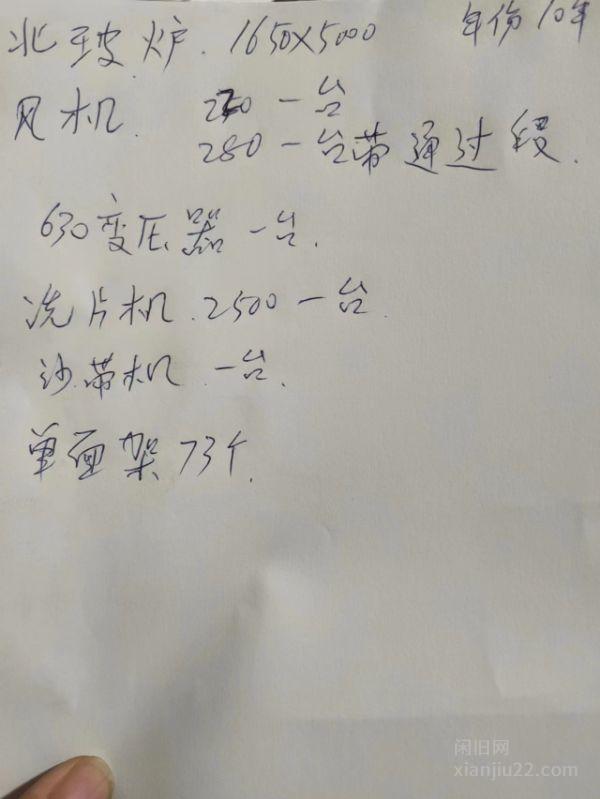 北玻炉. 1650×5000 年份10年
风机. 220一台
280一台带通过段.
630变压器一台.
洗片机.2500一台.
沙带机.一台.
单面架73个.
闲旧网
xianjiu22.com